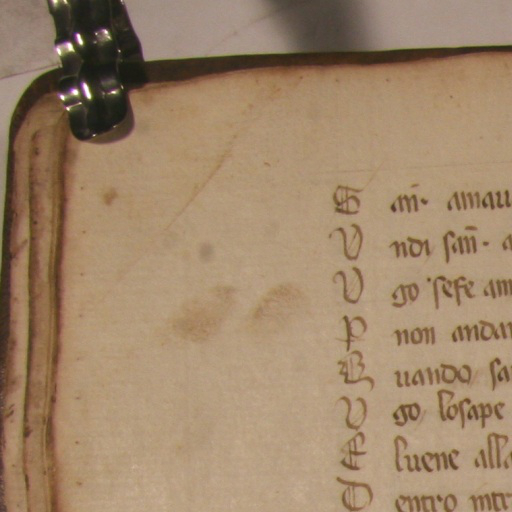 E an̄· amau
V ndi san̄· a
V go sese am
P non andar
Q uando sa
V go losape
E luene alla
D entro intr